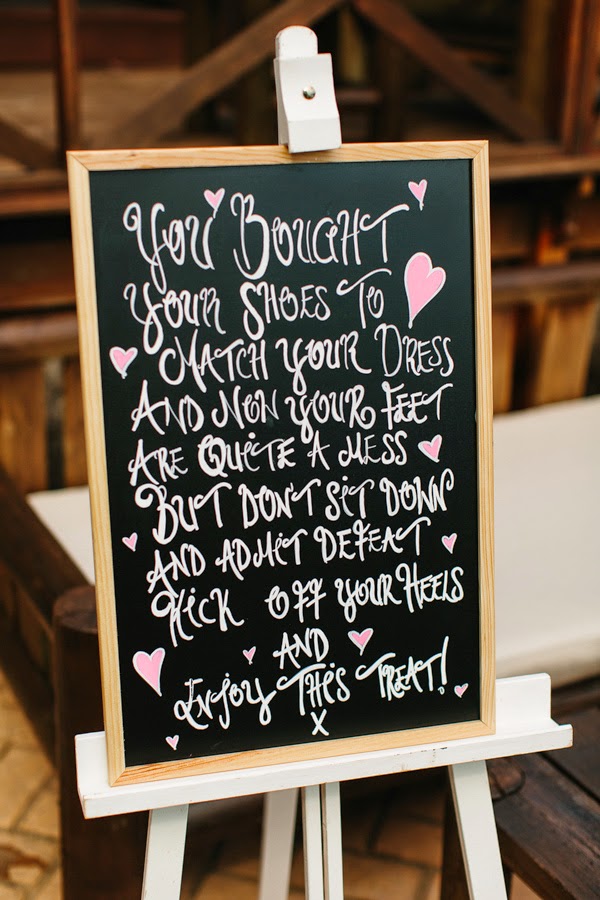 You Bought
Your Shoes To
Match Your Dress
And Now Your Feet
Are Quite A Mess
But Don't Sit Down
And Admit Defeat
Kick Off Your Heels
And
Enjoy This Treat!
X